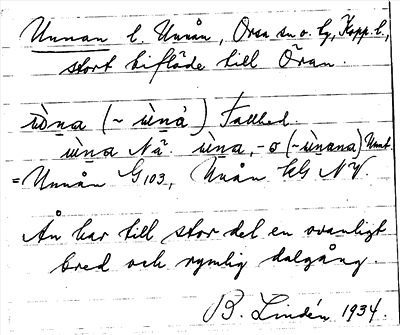 Unnan l. Unån, Orsa sn o. tg, Kopp. l.,
stort biflöde till Öran.
ùna (~ ùnå) Tallhed.
ùna Nä. ùna, -o (~ùnana) Unt.
= Unnån G 103, Unån NV.
Ån har till stor del en ovanligt
bred och rymlig dalgång.
B. Lindén 1934.